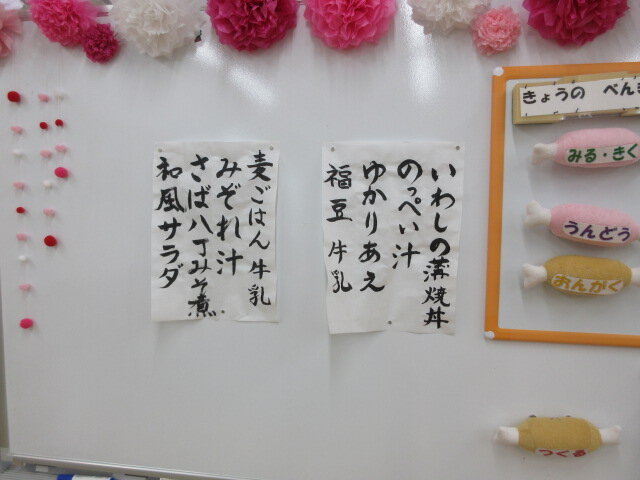 いわしの蒲焼丼
のっぺい汁
ゆかりあえ
福豆 牛乳
麦ごはん 牛乳
みぞれ汁
さば八丁みそ煮
和風サラダ
きょうの べん
みる・きく
うんどう
おんがく
つくる